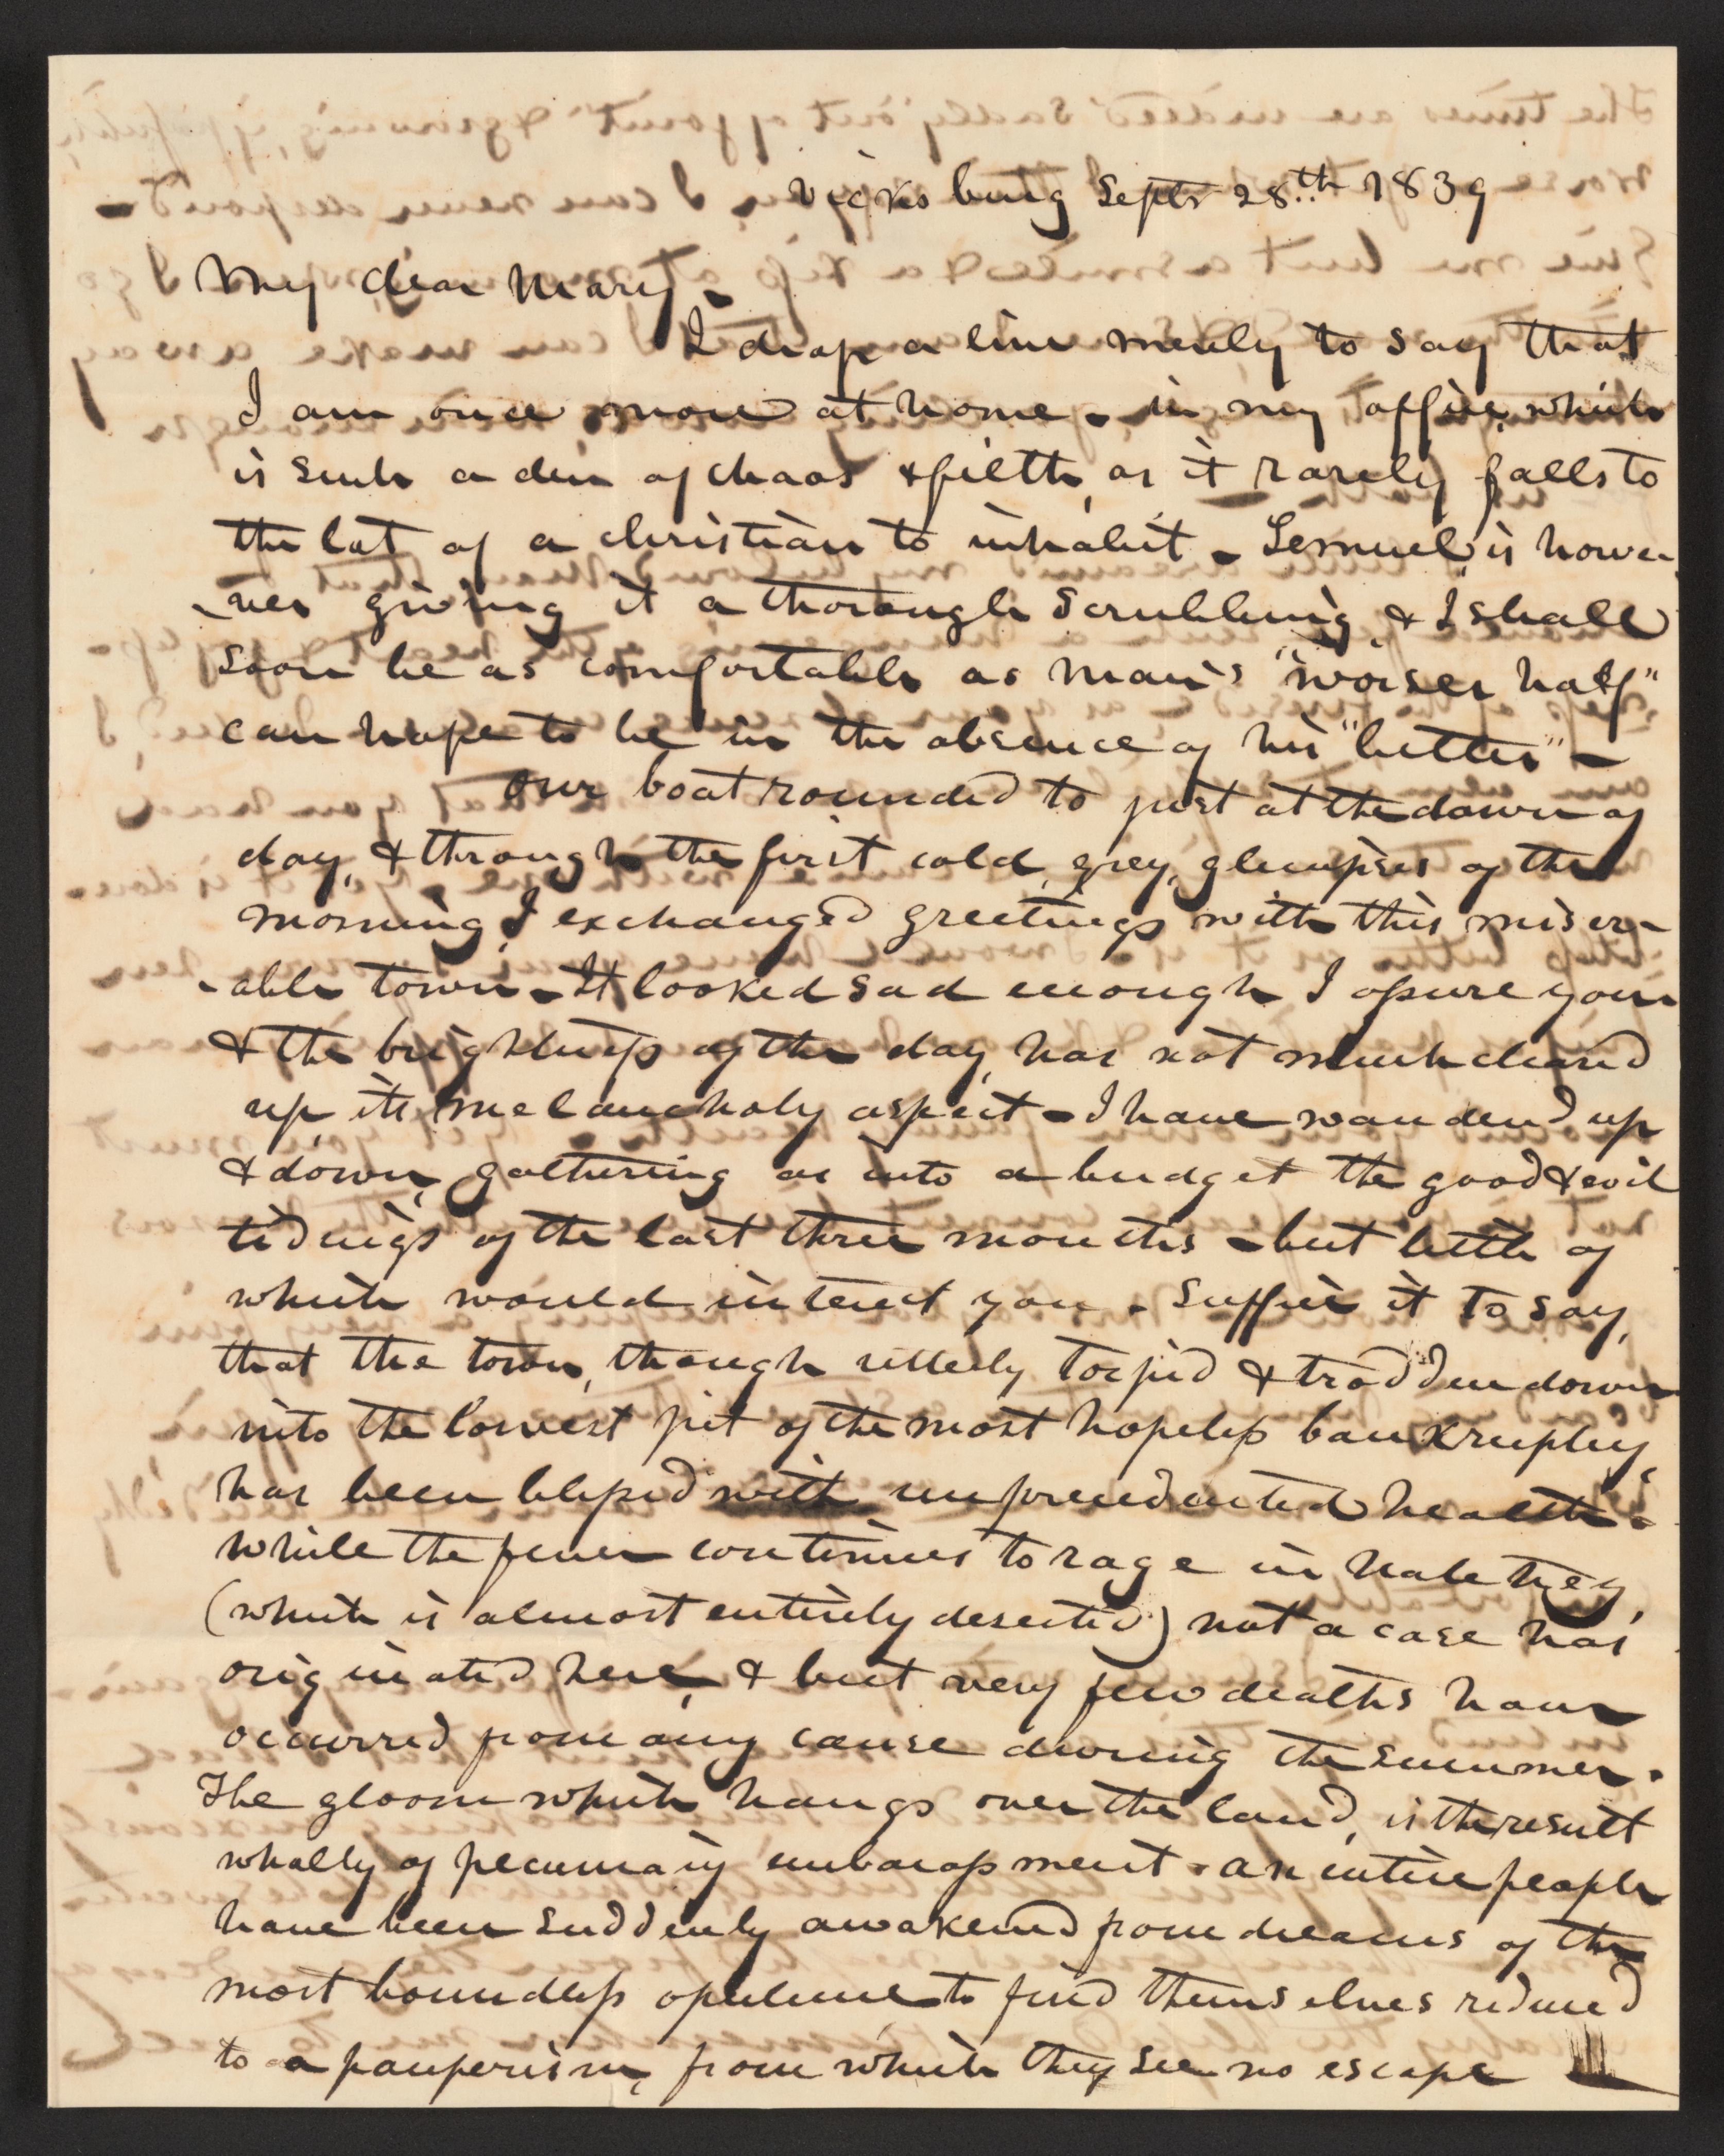 Vicksburg Septr 28th 1839
My dear Mary -
I drop a line merely to say that
I am once more at home - in my office, which
is such a den of chaos & filth, as it rarely falls to
the lot of a christian to inhabit - Lemuel is howe-
-ver giving it a thorough scrubbing, & I shall
soon be as comfortable as man's "worser half"
can hope to be in the absence of his "better" -
Our boat rounded to just at the dawn of
day, & through the first cold, grey, glimpses of the
morning, I exchanged greetings with this miser-
-able town - It looked sad enough I assure you
& the brightness of the day, has not much cleared
up, its melancholy aspect - I have wandered up
& down, gathering as into a budget the good & evil
tidings of the last three months - but little of
which would interest you. Suffice it to say,
that the town, though utterly torpid & trodden down
into the lowest pit of the most hopeless bankruptcy,
has been blessed with unprecedented health.
While the fever continues to rage in Natchez,
(which is almost entirely deserted) not a case has
originated here, & but very few deaths have
occurred from any cause during the summer.
The gloom which hangs over the land, is the result
wholly of pecuniary embarassment. An entire people
have been suddenly awakened from dreams of the
most boundless opulence to find themselves reduced
to a pauperism, from which they see no escape